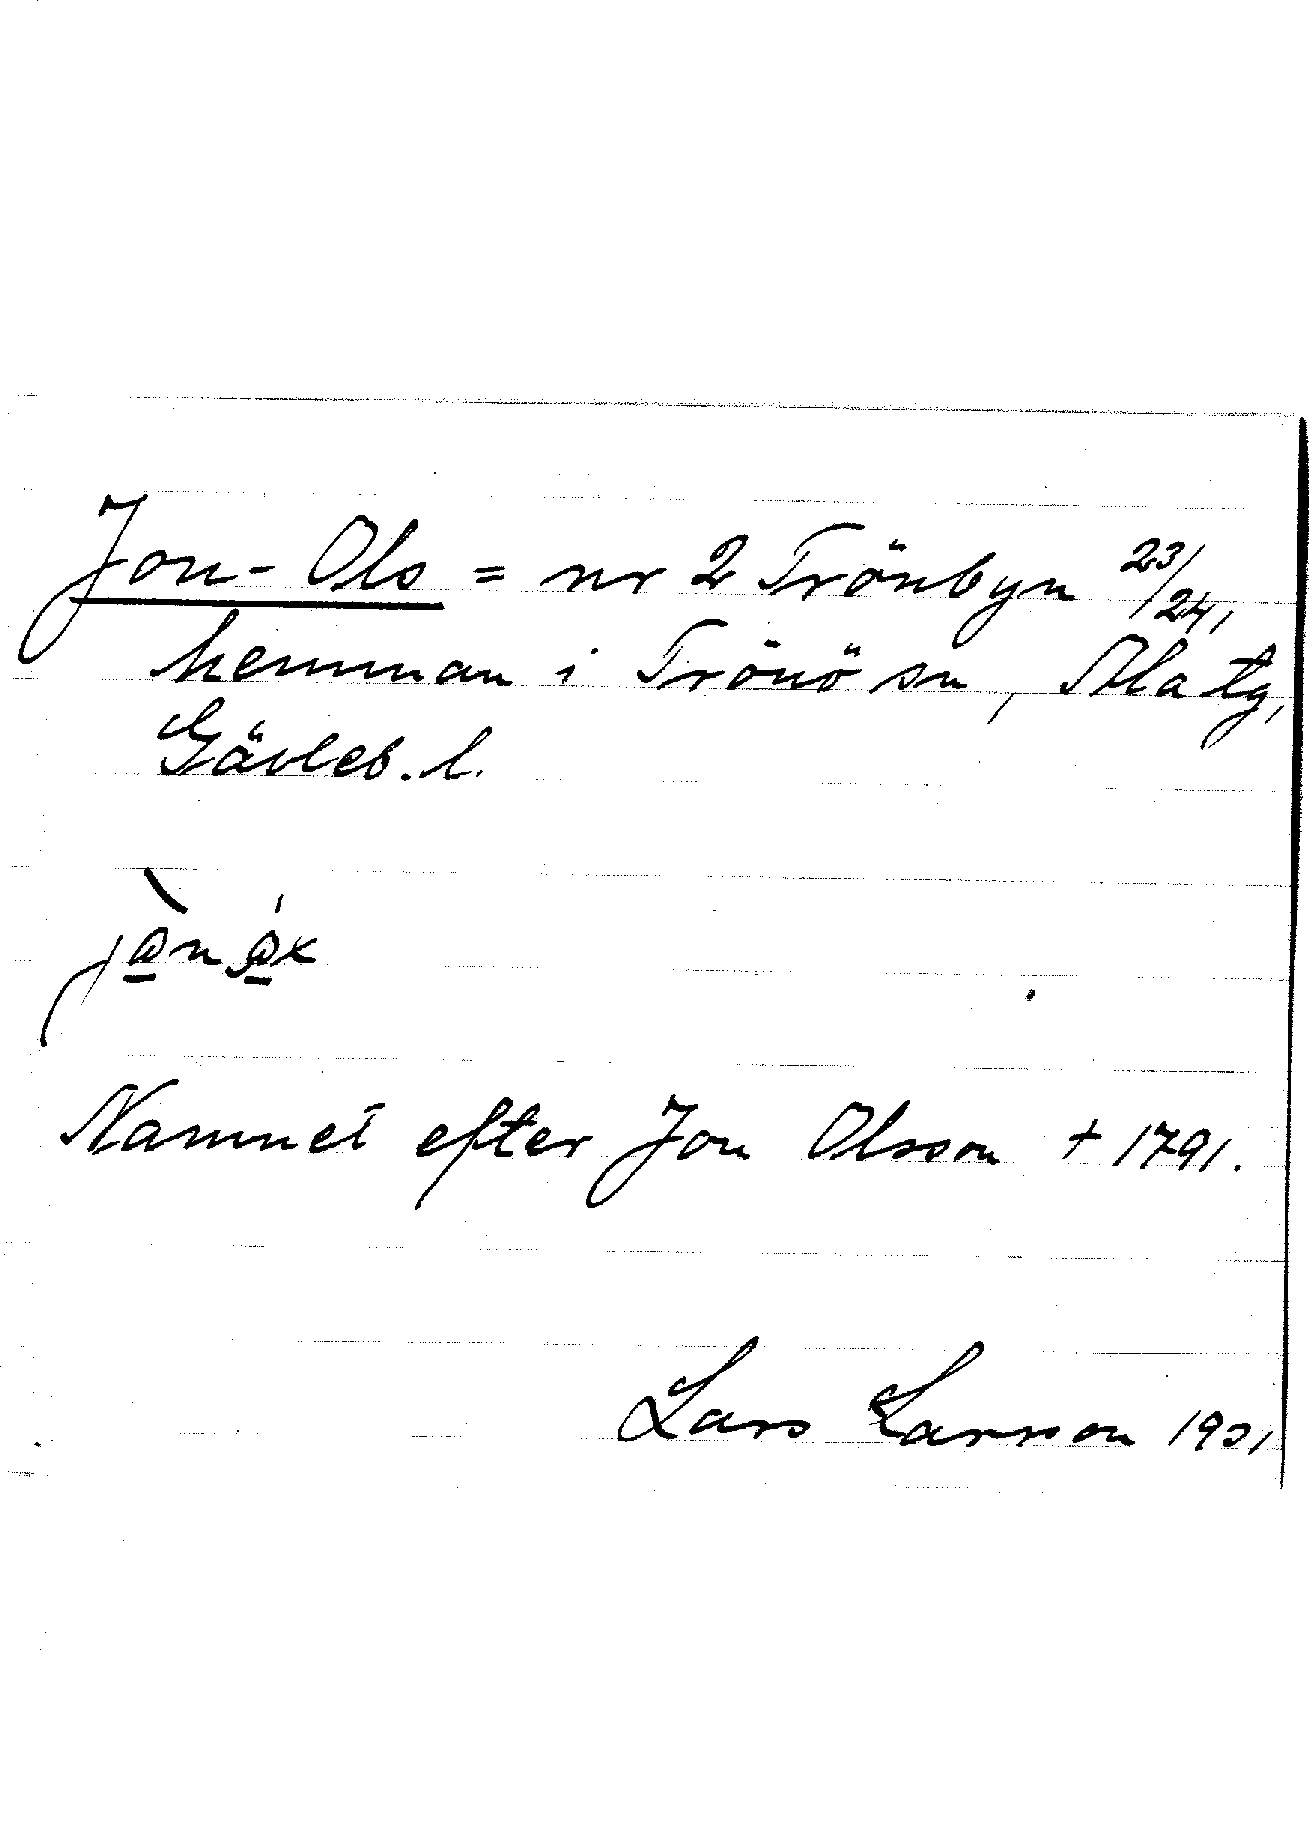 Jon-Ols = nr 2 Trönbyn 23/24,
hemman i Trönö sn, Ala tg,
Gävleb. l.
Namnet efter Jon Olsson + 1791.
Lars Larsson